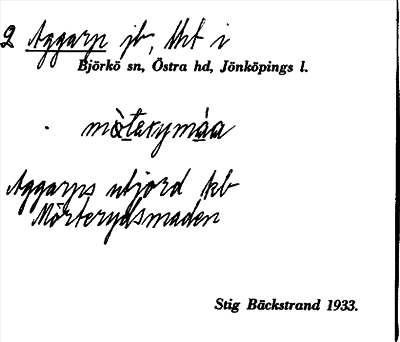 2 Aggarp jb, tkt i
Björkö sn, Östra hd, Jönköpings l.
mò̀tərymáa
Aggarps utjord kb
Mörterydsmaden
Stig Bäckstrand 1933.